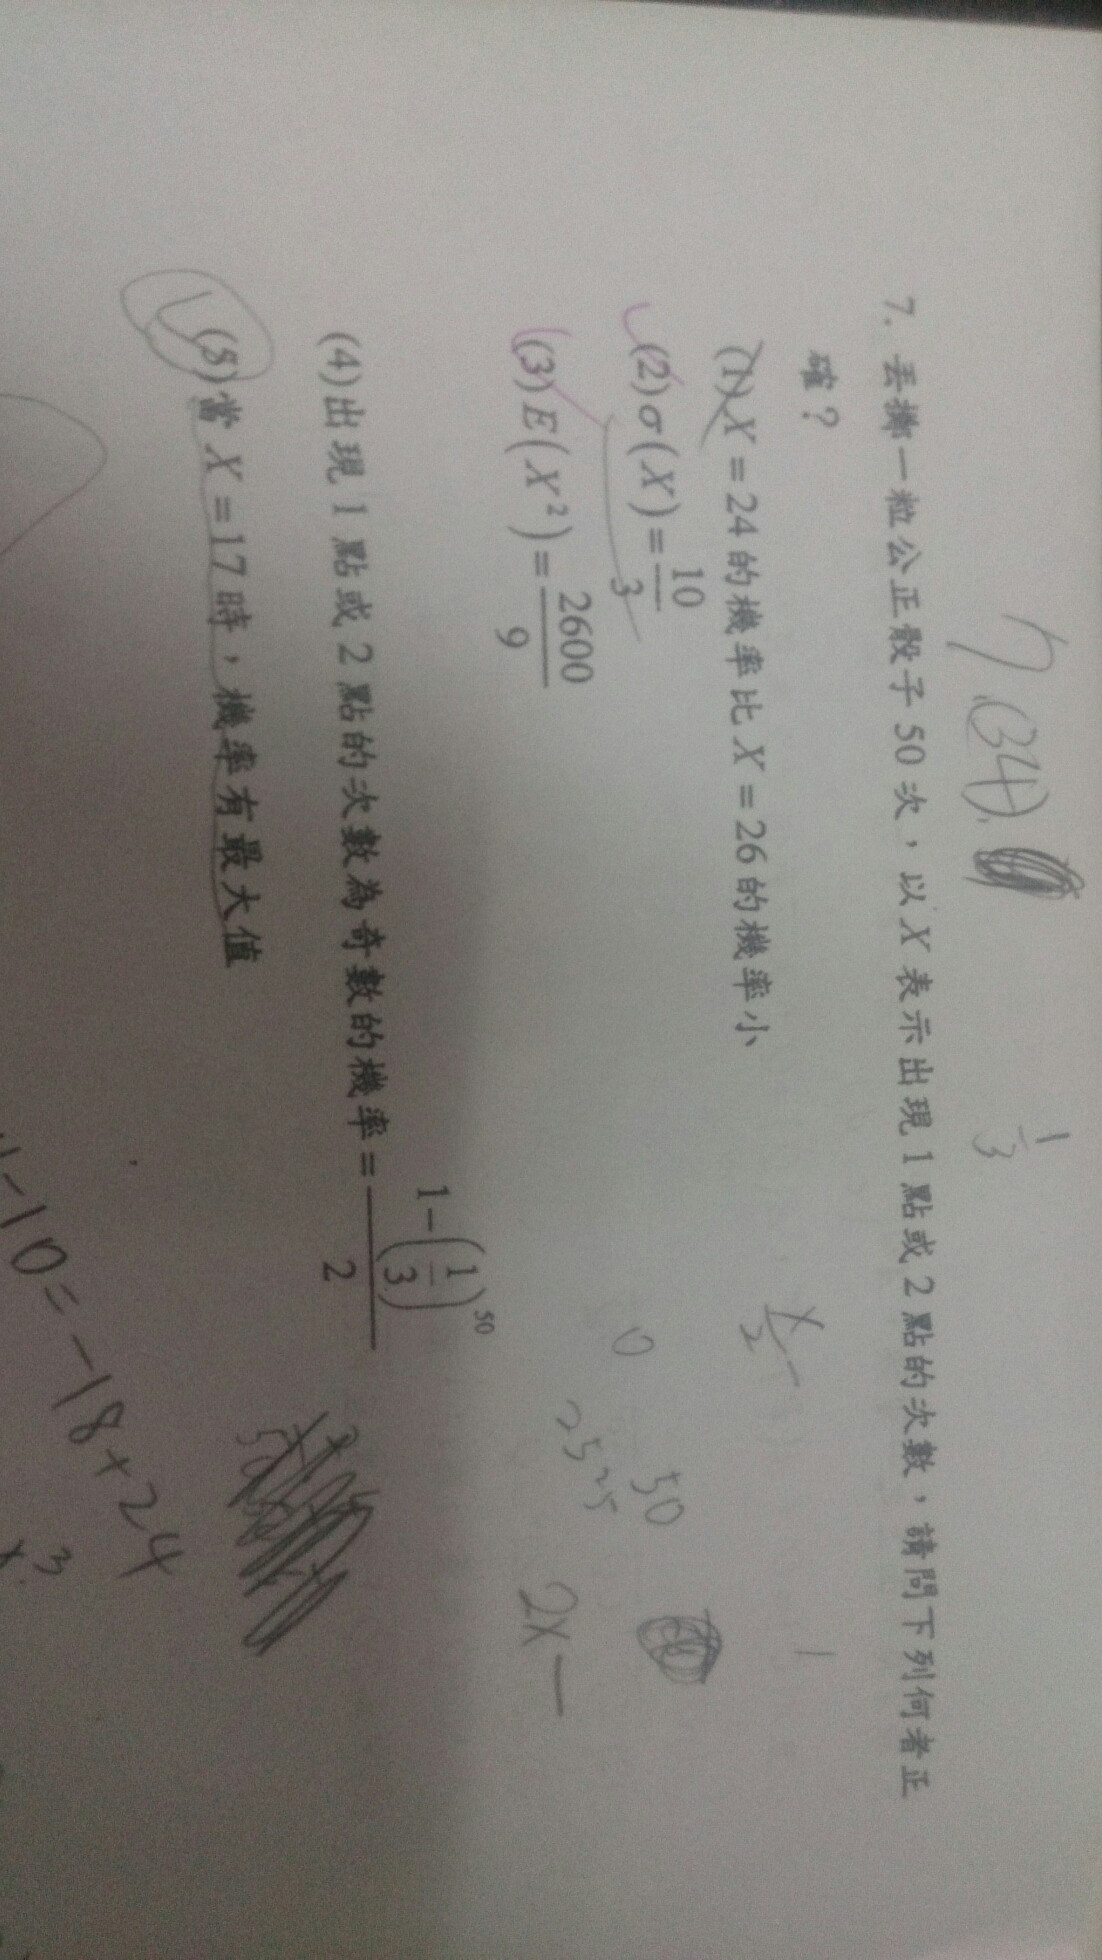 7. (34)
1/3
7. 丟擲一粒公正骰子 50 次，以 X 表示出現 1 點或 2 點的次數，請問下列何者正
確？
(1) X = 24 的機率比 X = 26 的機率小
(2) σ(X) = 10/3
(3) E(X²) = 2600/9
(4) 出現 1 點或 2 點的次數為奇數的機率 = (1-(1/3)^50)/2
(5) 當 X = 17 時，機率有最大值
0 50
25 25
2X-
-10=-18+24